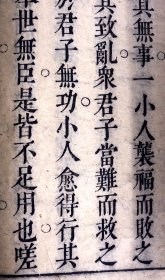 其無事一小人襲福而敗之
其致亂衆君子當難而救之
君子無功小人愈得行其
世無臣是皆不足用也嗟